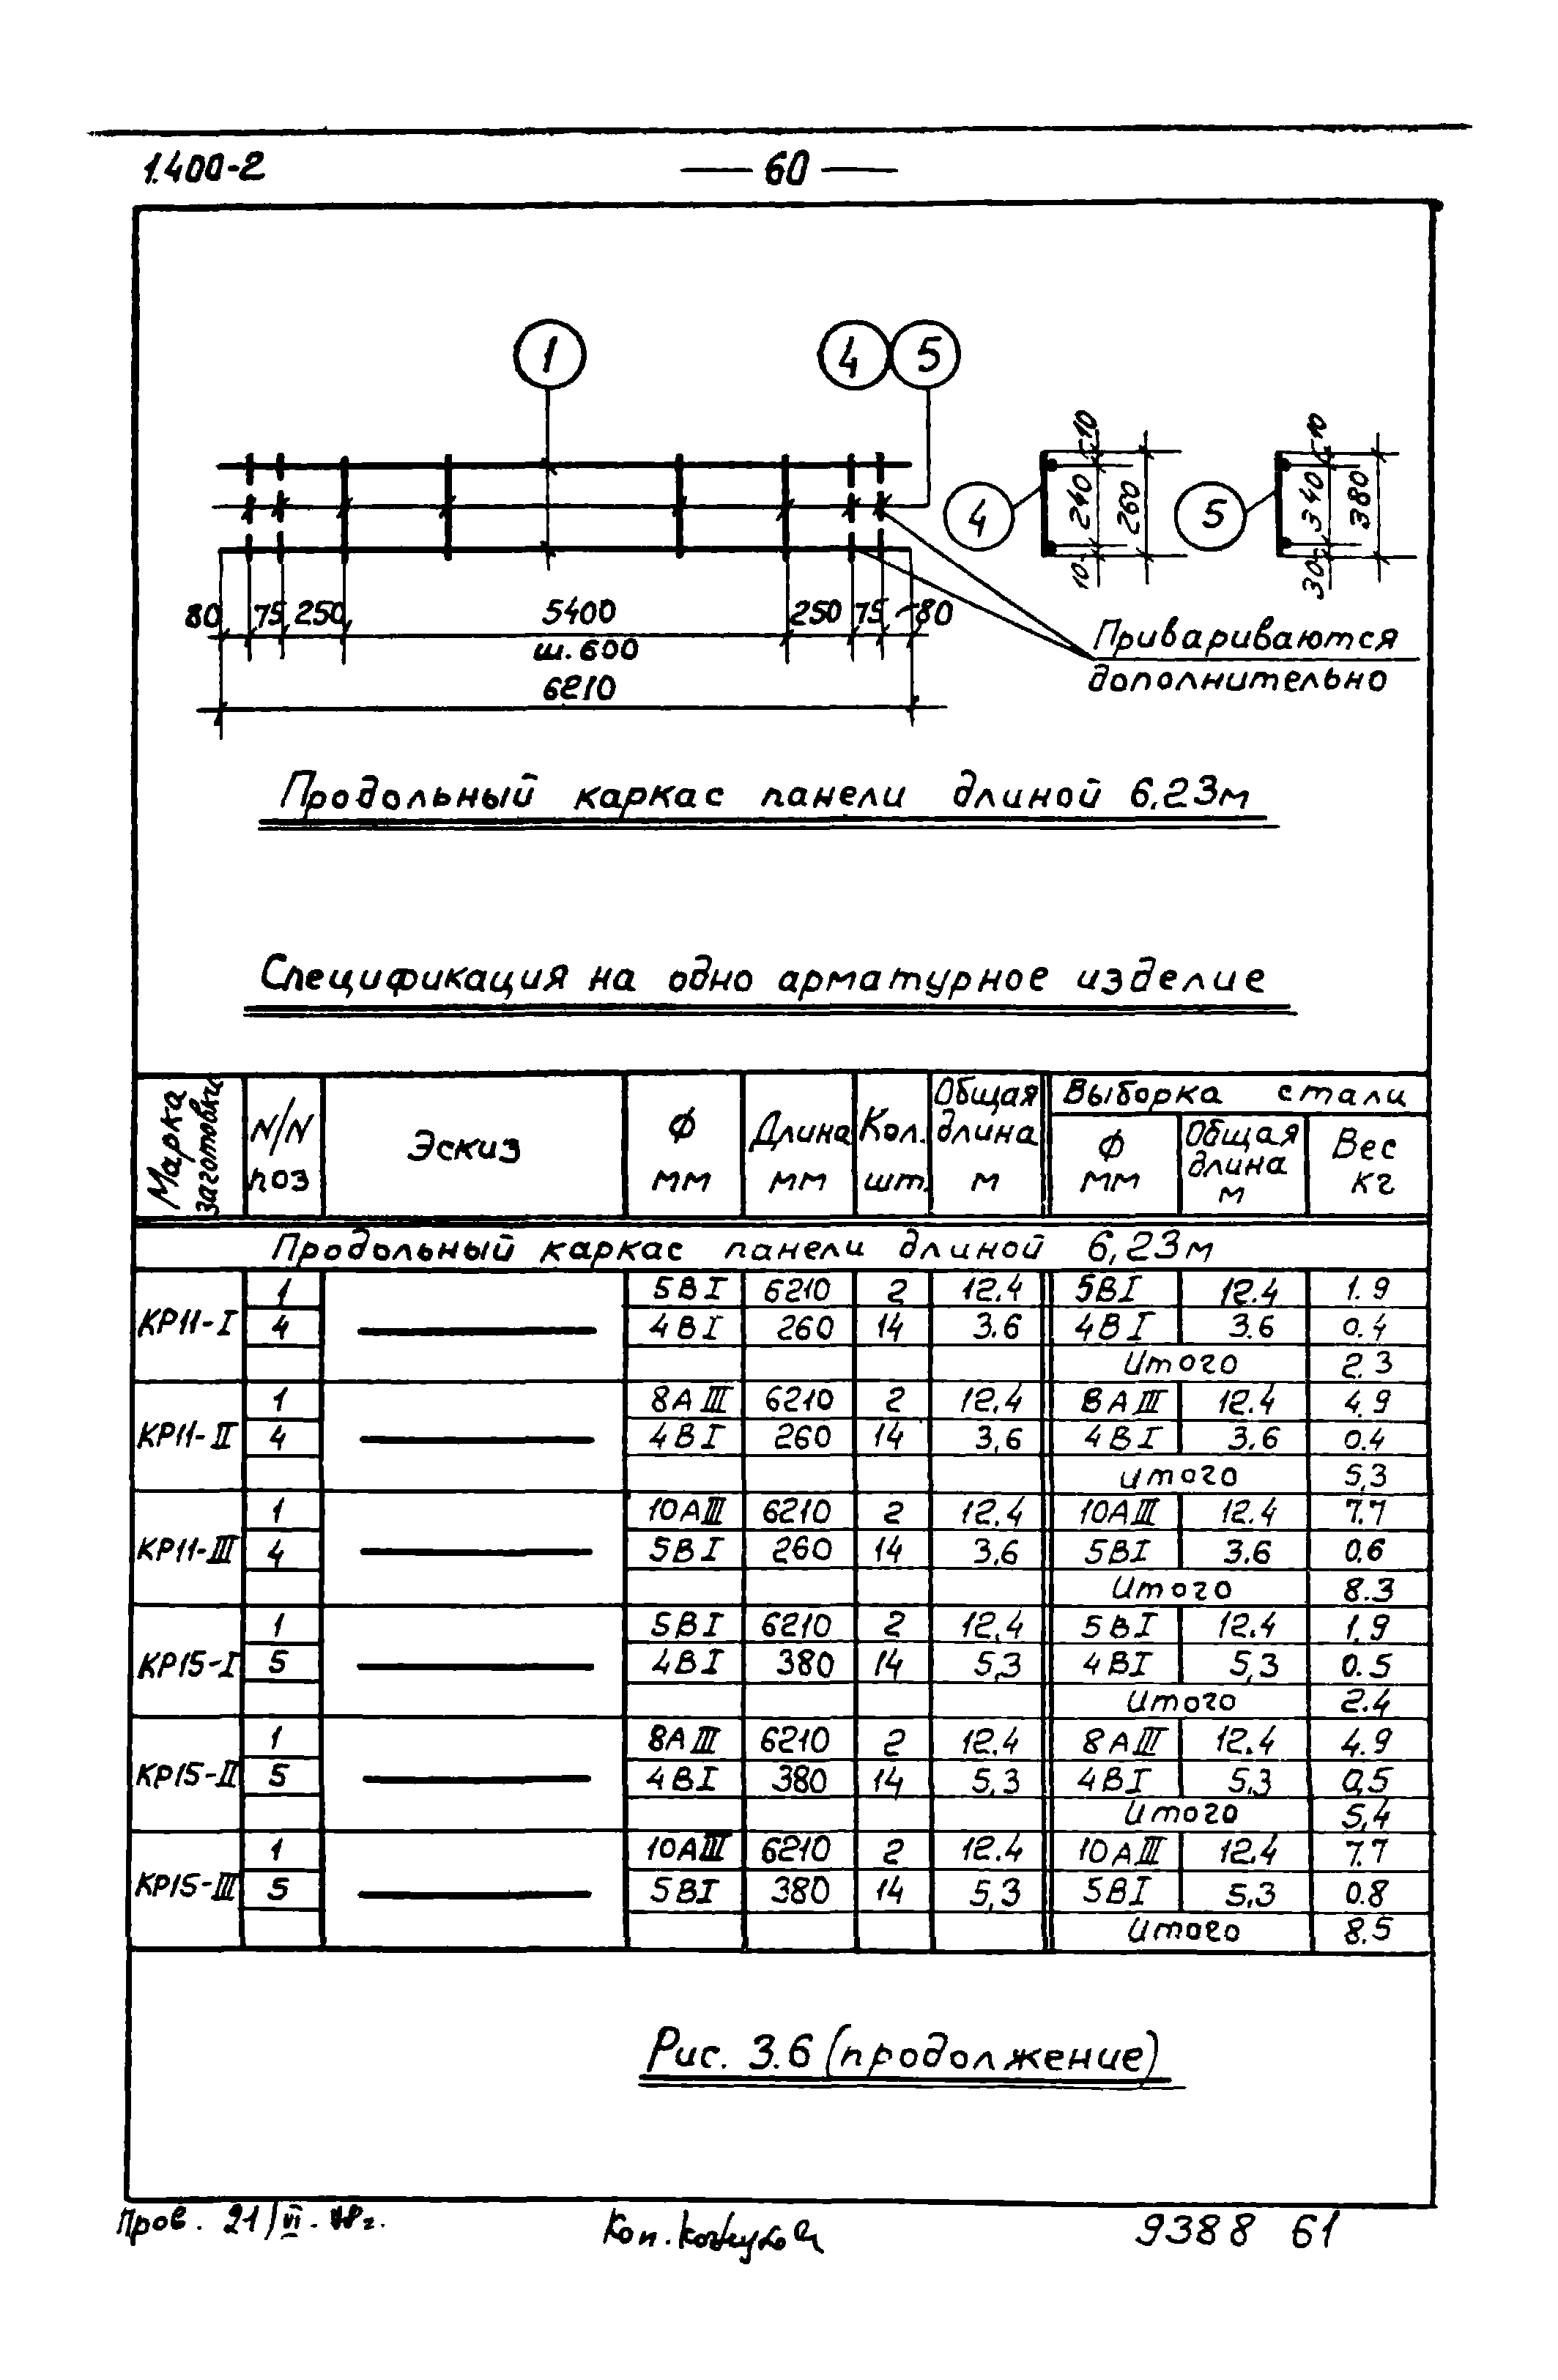 1.400-2
— 60 —
1 4 5
10 240 260 10
4
10 340 380 30
5
80 75 250 5400 250 75 80
ш. 600
6210
Привариваются
дополнительно
Продольный каркас панели длиной 6,23м
Спецификация на одно арматурное изделие
Марка заготовки N/N поз Эскиз Ф мм Длина мм Кол. шт. Общая длина м Выборка стали
Ф мм Общая длина м Вес кг
Продольный каркас панели длиной 6,23м
КР11-I 1 5ВI 6210 2 12.4 5ВI 12.4 1.9
4 4ВI 260 14 3.6 4ВI 3.6 0.4
Итого 2.3
КР11-II 1 8АIII 6210 2 12.4 8АIII 12.4 4.9
4 4ВI 260 14 3,6 4ВI 3.6 0.4
итого 5,3
КР11-III 1 10АIII 6210 2 12,4 10АIII 12.4 7.7
4 5ВI 260 14 3,6 5ВI 3.6 0.6
Итого 8.3
КР15-I 1 5ВI 6210 2 12,4 5ВI 12.4 1.9
5 4ВI 380 14 5,3 4ВI 5,3 0.5
Итого 2.4
КР15-II 1 8АIII 6210 2 12.4 8АIII 12.4 4.9
5 4ВI 380 14 5,3 4ВI 5,3 0,5
Итого 5,4
КР15-III 1 10АIII 6210 2 12.4 10АIII 12.4 7.7
5 5ВI 380 14 5,3 5ВI 5,3 0.8
Итого 8.5
Рис. 3.6 (продолжение)
Пров. 21/VI-78г. Коп. 9388 61